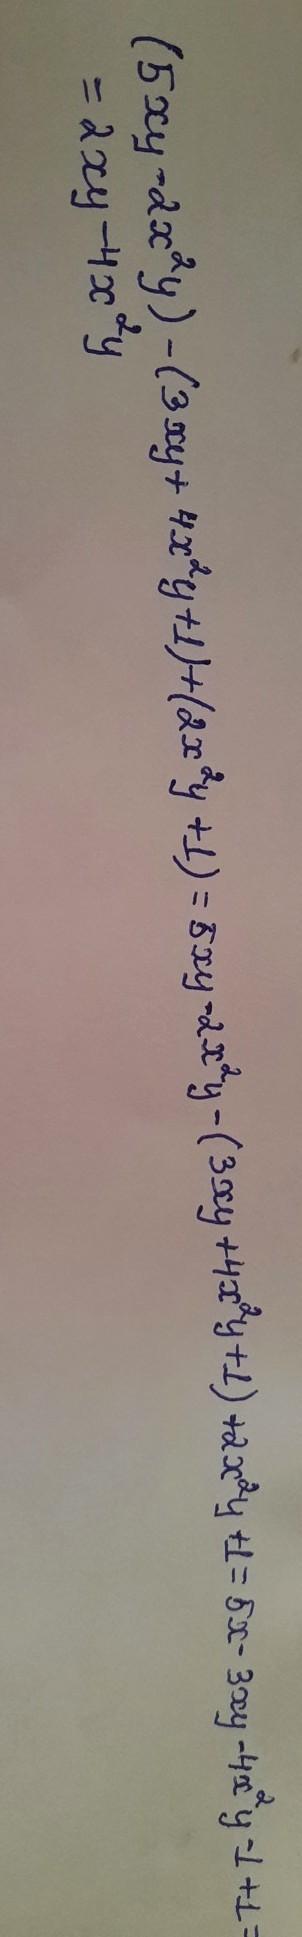 (5xy-2x²y)-(3xy+4x²y+1)+(2x²y+1)=5xy-2x²y-(3xy+4x²y+1)+2x²y+1=5x-3xy-4x²y-1+1=
=2xy-4x²y